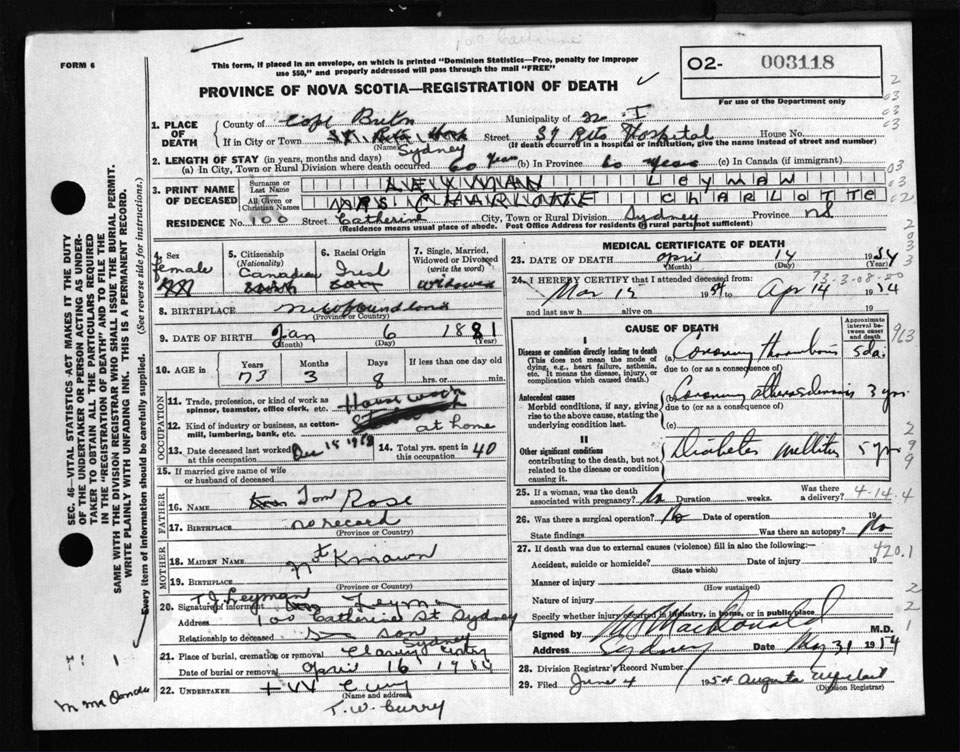 100 Catherine
FORM 6
This form, if placed in an envelope, on which is printed "Dominion Statistics—Free, penalty for improper
use $50," and properly addressed will pass through the mail "FREE"
PROVINCE OF NOVA SCOTIA—REGISTRATION OF DEATH
O2- 003118
For use of the Department only
1. PLACE OF DEATH
County of Cape Breton Municipality of
If in City or Town Sydney Street St Rita Hospital House No.
(Name) (If death occurred in a hospital or institution, give the name instead of street and number)
2. LENGTH OF STAY (in years, months and days)
(a) In City, Town or Rural Division where death occurred 60 years (b) In Province 60 years (c) In Canada (if immigrant)
3. PRINT NAME OF DECEASED
Surname or Last Name LEYMAN LEYMAN
All Given or Christian Names MRS CHARLOTTE CHARLOTTE
RESIDENCE No. 100 Street Catherine City, Town or Rural Division Sydney Province NS
(Residence means usual place of abode. Post Office Address for residents of rural parts not sufficient)
4. Sex Female
5. Citizenship (Nationality) Canadian
6. Racial Origin Irish
7. Single, Married, Widowed or Divorced (write the word) Widowed
8. BIRTHPLACE Newfoundland
(Province or Country)
9. DATE OF BIRTH Jan 6 1881
(Month) (Day) (Year)
10. AGE in Years 73 Months 3 Days 8 If less than one day old
hrs. or min.
OCCUPATION
11. Trade, profession, or kind of work as spinner, teamster, office clerk, etc. House work
12. Kind of industry or business, as cotton-mill, lumbering, bank, etc. at home
13. Date deceased last worked at this occupation Dec 15 1953 14. Total yrs. spent in this occupation 40
15. If married give name of wife or husband of deceased
FATHER
16. NAME Tom Rose
17. BIRTHPLACE no record
(Province or Country)
MOTHER
18. MAIDEN NAME Not Known
19. BIRTHPLACE
(Province or Country)
20. Signature of informant T J Leyman
Address 100 Catherine St Sydney
Relationship to deceased son
21. Place of burial, cremation or removal Sydney
Date of burial or removal April 16 1954
22. UNDERTAKER T W Curry
(Name and address)
T.W. Curry
MEDICAL CERTIFICATE OF DEATH
23. DATE OF DEATH April 14 1954
(Month) (Day) (Year)
24. I HEREBY CERTIFY that I attended deceased from:
Mar 15 1954 to Apr 14 1954
and last saw h alive on 19
CAUSE OF DEATH
Approximate interval between onset and death
I
Disease or condition directly leading to death (a) Coronary thrombosis 5 da.
(This does not mean the mode of dying, e.g., heart failure, asthenia, etc. It means the disease, injury, or complication which caused death.)
due to (or as a consequence of)
Antecedent causes (b) Coronary atherosclerosis 3 yrs
Morbid conditions, if any, giving rise to the above cause, stating the underlying condition last.
due to (or as a consequence of)
(c)
II
Other significant conditions Diabetes mellitus 5 yrs
contributing to the death, but not related to the disease or condition causing it.
25. If a woman, was the death associated with pregnancy? No Duration weeks. Was there a delivery?
4-14-4
26. Was there a surgical operation? No Date of operation 19
State findings Was there an autopsy? No
27. If death was due to external causes (violence) fill in also the following:—
420.1
Accident, suicide or homicide? Date of injury 19
(State which)
Manner of injury
(How sustained)
Nature of injury
Specify whether injury occurred in industry, in home, or in public place
Signed by MacDonald M.D.
Address Sydney Date May 31 1954
28. Division Registrar's Record Number
29. Filed June 4 1954 Augusta
(Division Registrar)
SEC. 46—VITAL STATISTICS ACT MAKES IT THE DUTY
OF THE UNDERTAKER OR PERSON ACTING AS UNDER-
TAKER TO OBTAIN ALL THE PARTICULARS REQUIRED
IN THE "REGISTRATION OF DEATH" AND TO FILE THE
SAME WITH THE DIVISION REGISTRAR WHO SHALL ISSUE THE BURIAL PERMIT.
WRITE PLAINLY WITH UNFADING INK. THIS IS A PERMANENT RECORD.
Every item of information should be carefully supplied. (See reverse side for instructions.)